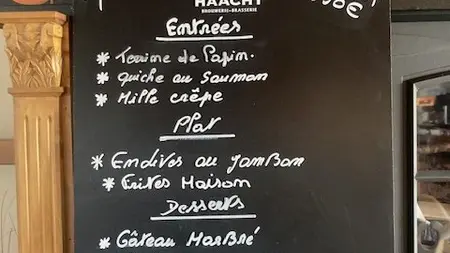 HAACHT
BROUWERIJ-BRASSERIE
Entrées
* Terrine de Lapin.
* Quiche au Saumon
* Mille crêpe
Plat
* Endives au JamBon
* Frites Maison
Desserts
* Gâteau MarBré